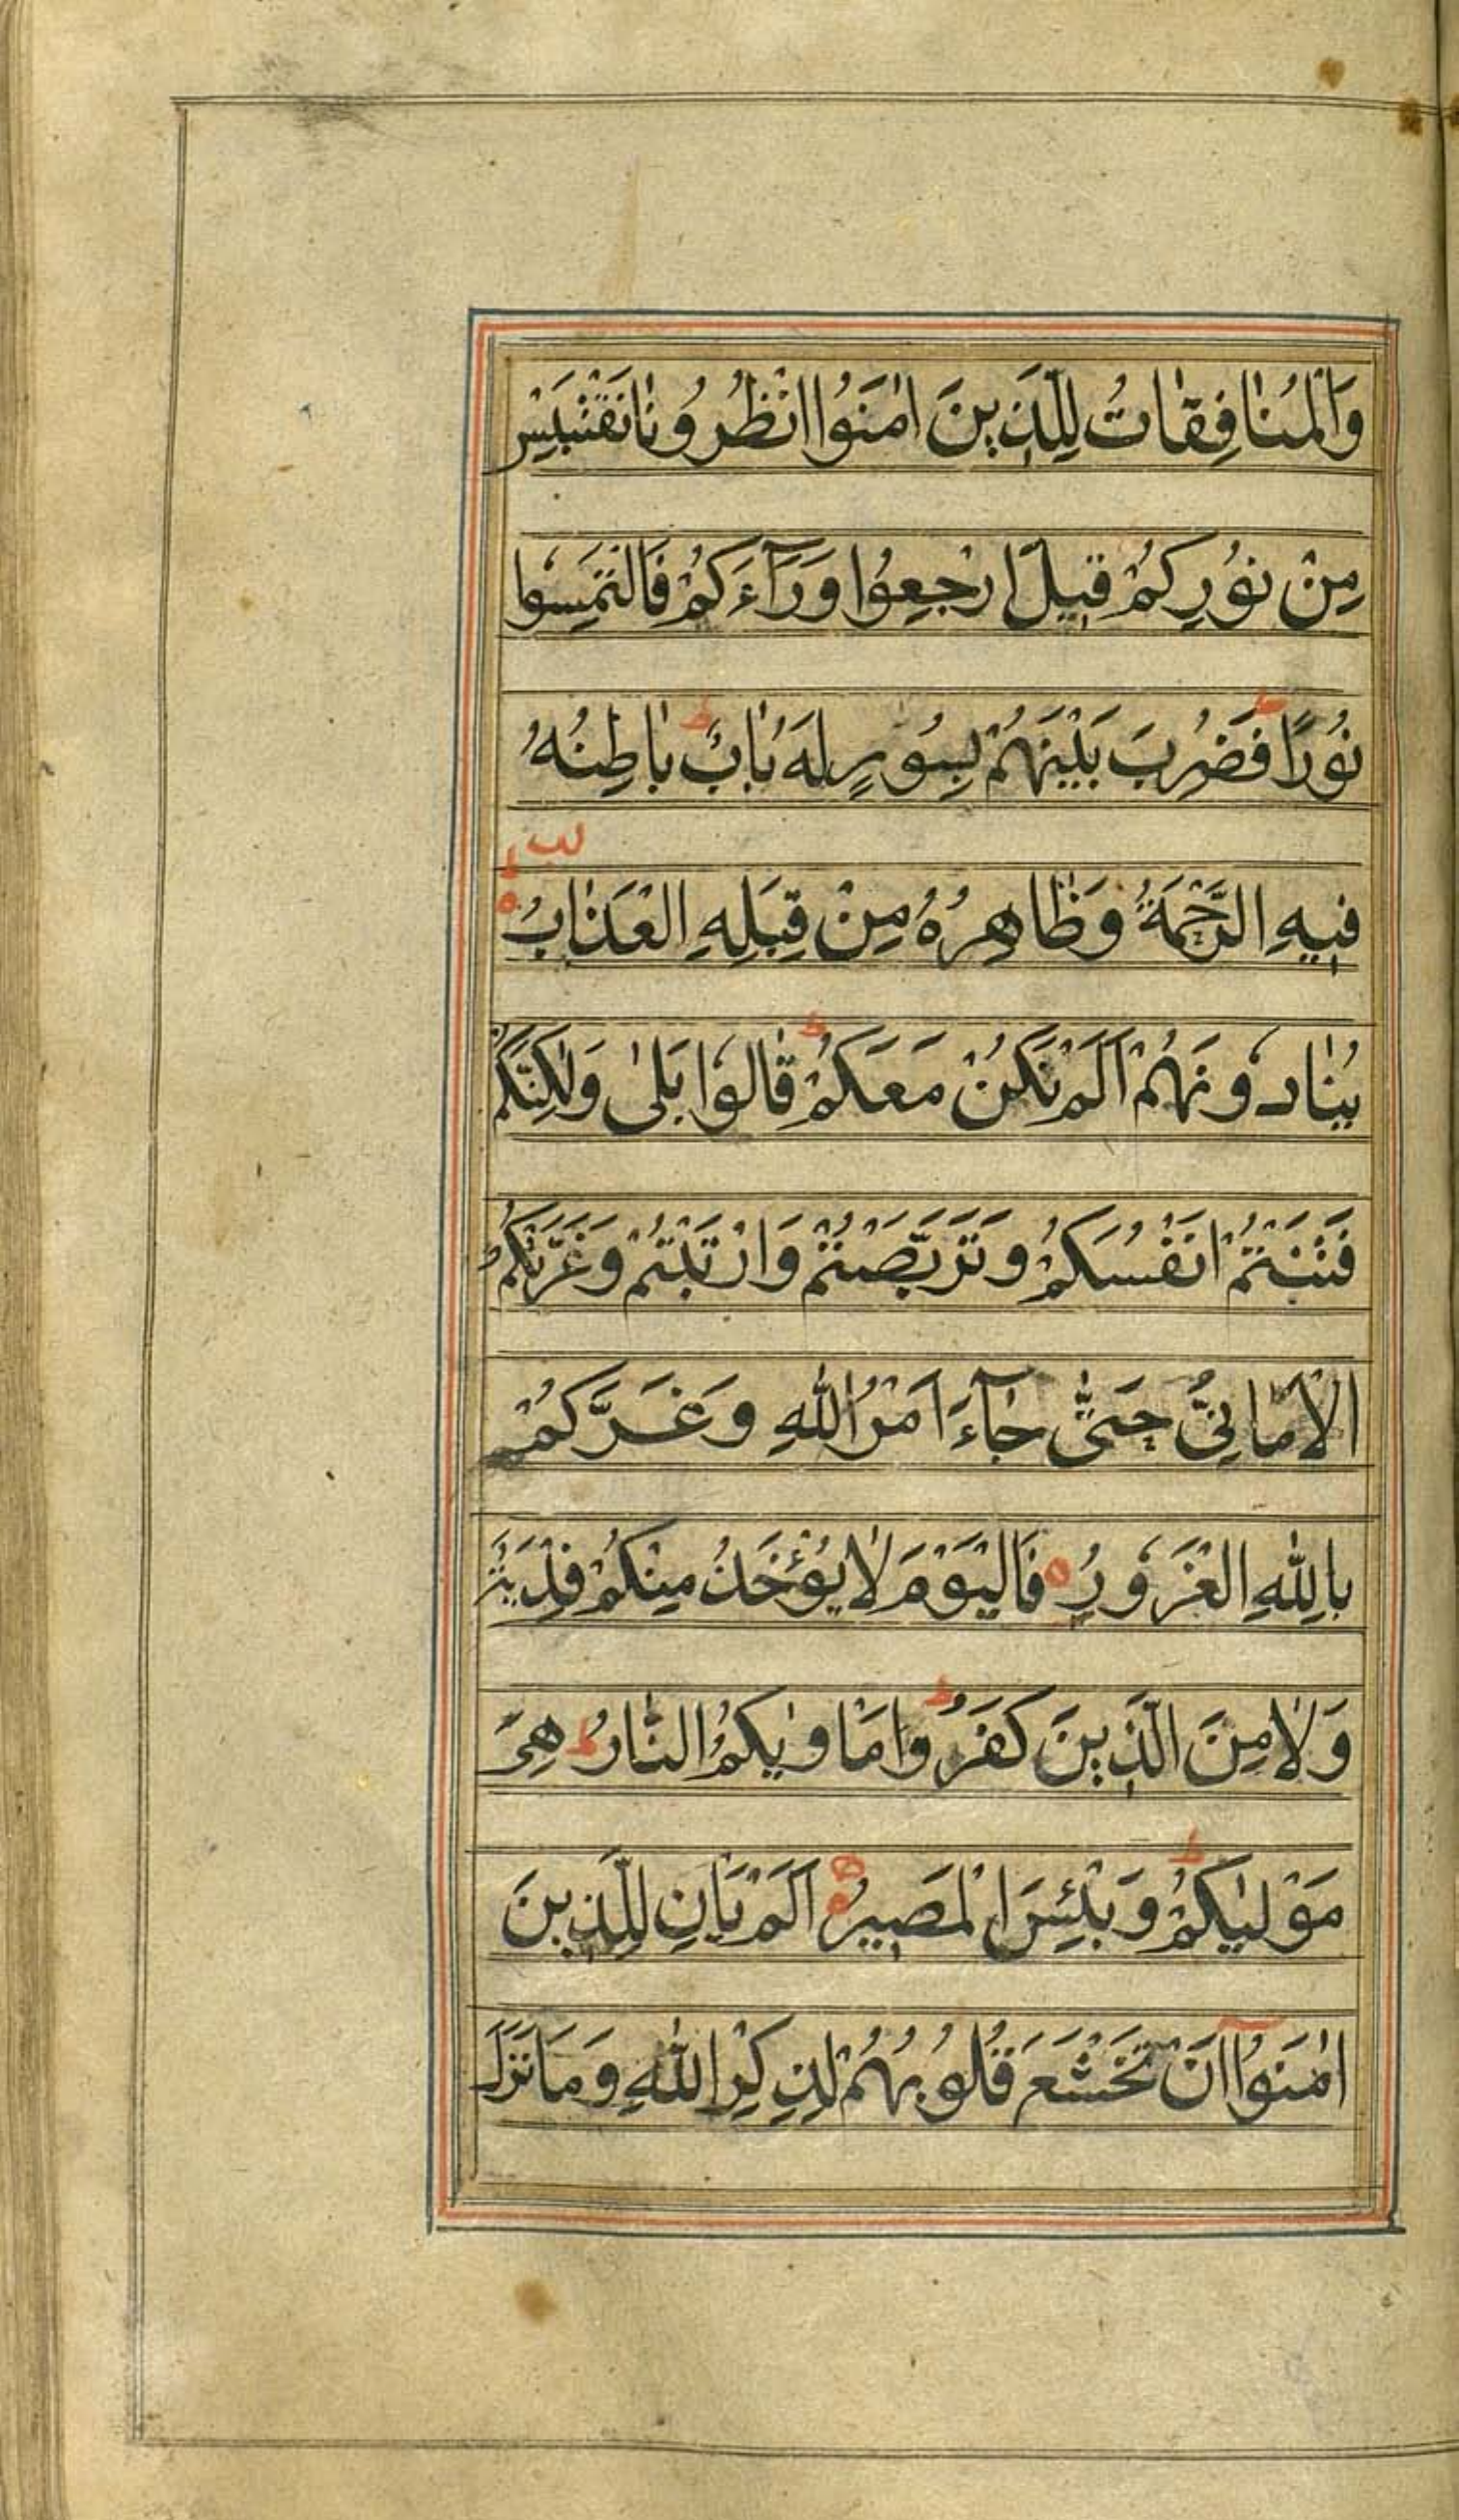 وَالْمُنَافِقَاتُ لِلَّذِينَ اٰمَنُوا انْظُرُونَا نَقْتَبِسْ
مِنْ نُورِكُمْ قِيلَ ارْجِعُوا وَرَآءَكُمْ فَالْتَمِسُوا
نُورًا ط فَضُرِبَ بَيْنَهُمْ بِسُورٍ لَهُ بَابٌ ط بَاطِنُهُ
فِيهِ الرَّحْمَةُ وَظَاهِرُهُ مِنْ قِبَلِهِ الْعَذَابُ
يُنَادُونَهُمْ اَلَمْ نَكُنْ مَعَكُمْ ط قَالُوا بَلٰى وَلٰكِنَّكُمْ
فَتَنْتُمْ اَنْفُسَكُمْ وَتَرَبَّصْتُمْ وَارْتَبْتُمْ وَغَرَّتْكُمُ
الْاَمَانِيُّ حَتّٰى جَآءَ اَمْرُ اللّٰهِ وَغَرَّكُمْ
بِاللّٰهِ الْغَرُورُ فَالْيَوْمَ لَا يُؤْخَذُ مِنْكُمْ فِدْيَةٌ
وَلَا مِنَ الَّذِينَ كَفَرُوا ط مَاْوٰيكُمُ النَّارُ ط هِيَ
مَوْلٰيكُمْ ط وَبِئْسَ الْمَصِيرُ اَلَمْ يَاْنِ لِلَّذِينَ
اٰمَنُوا اَنْ تَخْشَعَ قُلُوبُهُمْ لِذِكْرِ اللّٰهِ وَمَا نَزَلَ